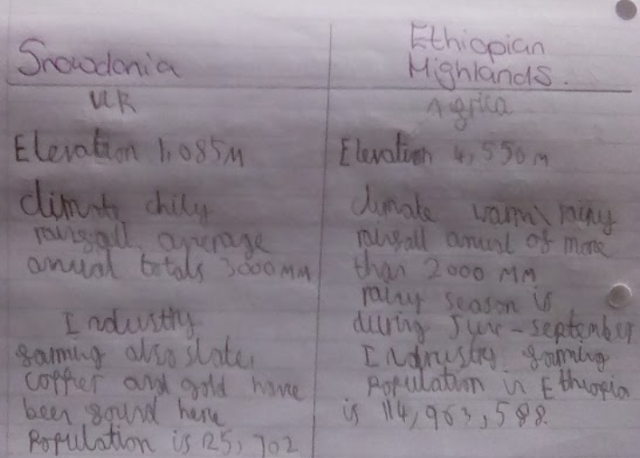 Snowdonia
UK
Elevation 1,085M
climate chilly
rainfall average
anual totals 3000MM
Industry
farming also slate,
copper and gold have
been found here
Population is 25,702
Ethiopian
Highlands.
Africa
Elevation 4,550m
climate warm\rainy
rainfall anual of more
than 2000 MM
rainy season is
during June-september
Industry farming
Population in Ethiopia
is 114,963,588